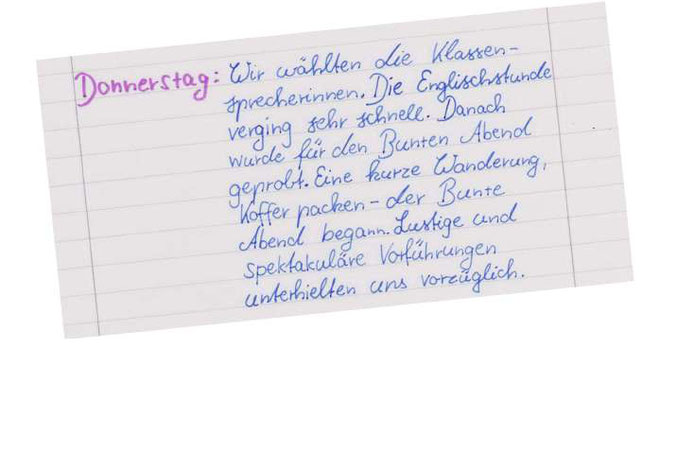 Donnerstag: Wir wählten die Klassen-
sprecherinnen. Die Englischstunde
verging sehr schnell. Danach
wurde für den Bunten Abend
geprobt. Eine kurze Wanderung,
Koffer packen - der Bunte
Abend begann. Lustige und
spektakuläre Vorführungen
unterhielten uns vorzüglich.